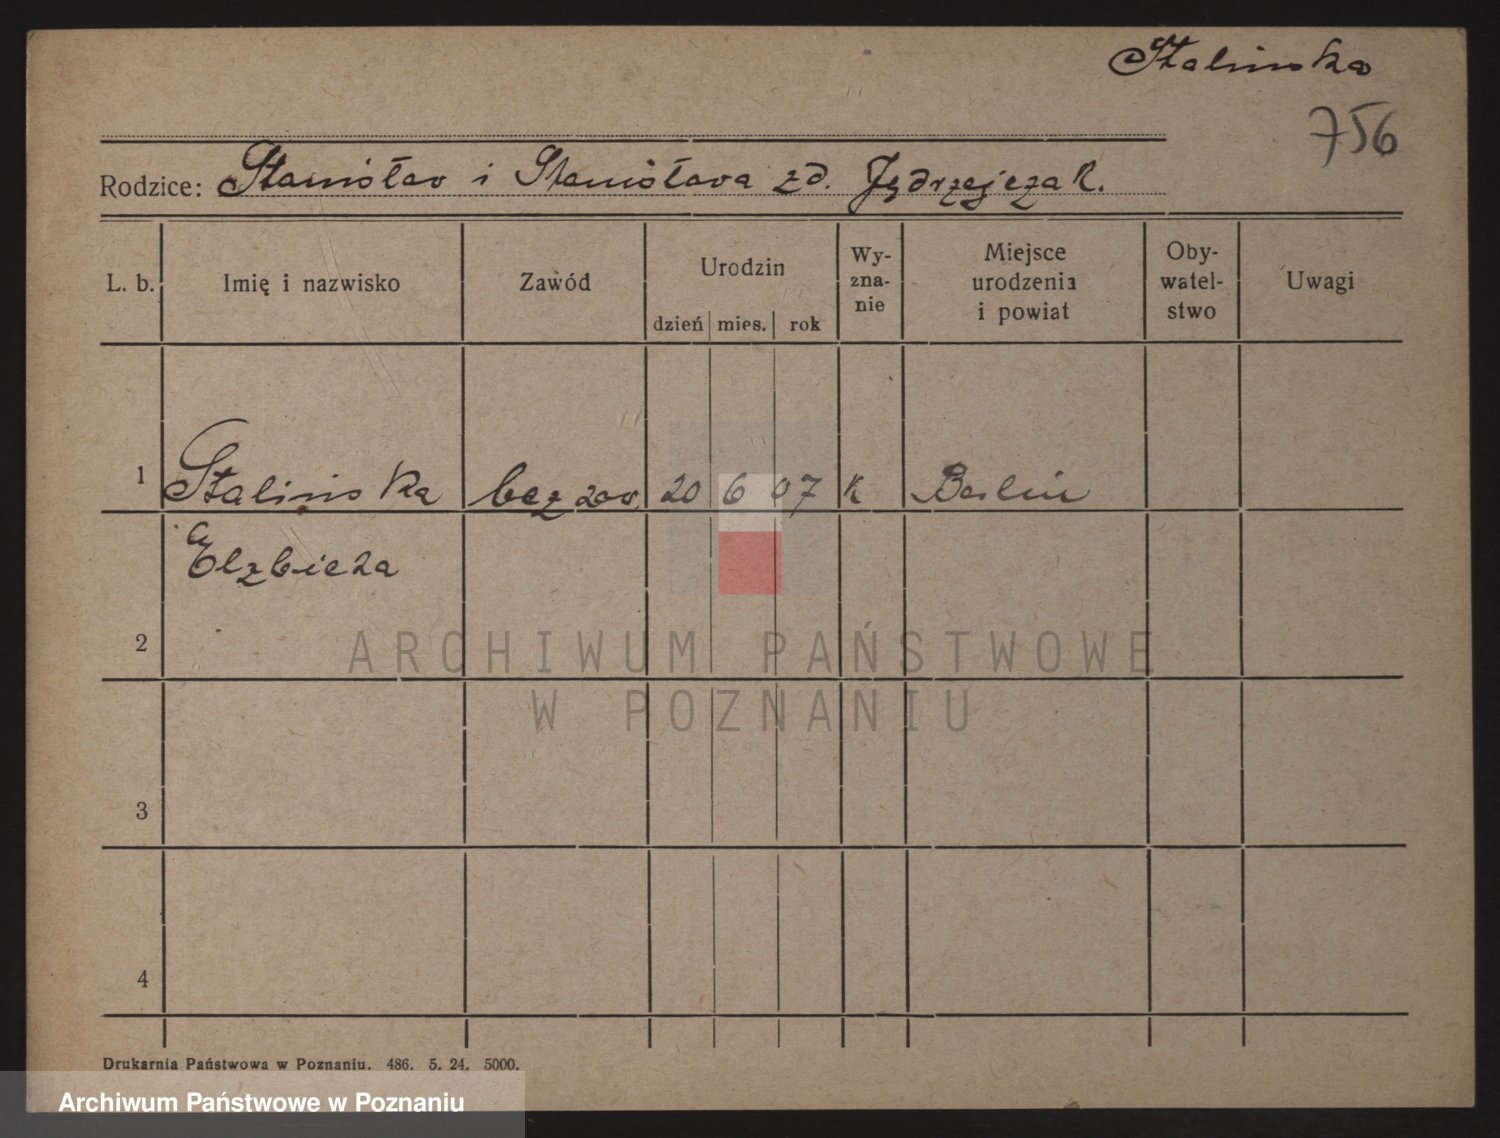 Stalinska
756
Rodzice: Stanisław i Stanisława zd. Jędrzejczak.
L. b. Imię i nazwisko Zawód Urodzin dzień mies. rok Wy-zna-nie Miejsce urodzenia i powiat Oby-watel-stwo Uwagi
1 Stalinska bez zaw. 20 6 07 k Berlin
Elzbieta
2
3
4
ARCHIWUM PAŃSTWOWE
W POZNANIU
Drukarnia Państwowa w Poznaniu. 486. 5. 24. 5000.
Archiwum Państwowe w Poznaniu